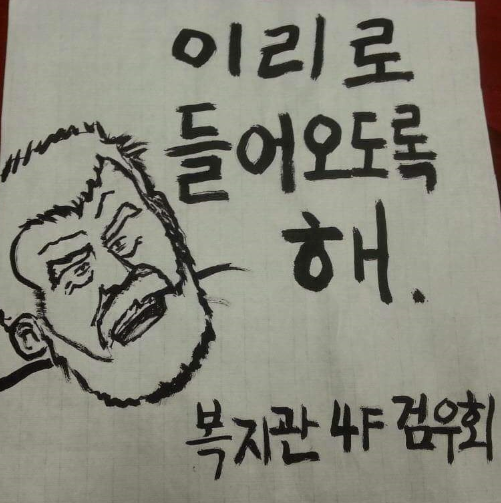 이리로
들어오도록
해.
복지관 4F 검우회